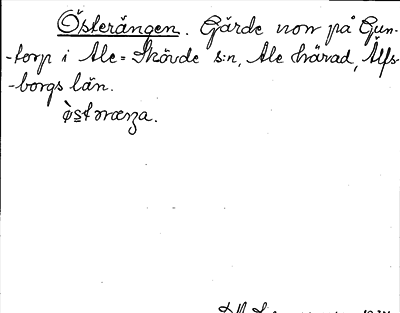 Österängen. Gärde norr på Gun-
-torp i Ale-Skövde s:n, Ale härad, Älfs-
-borgs län.